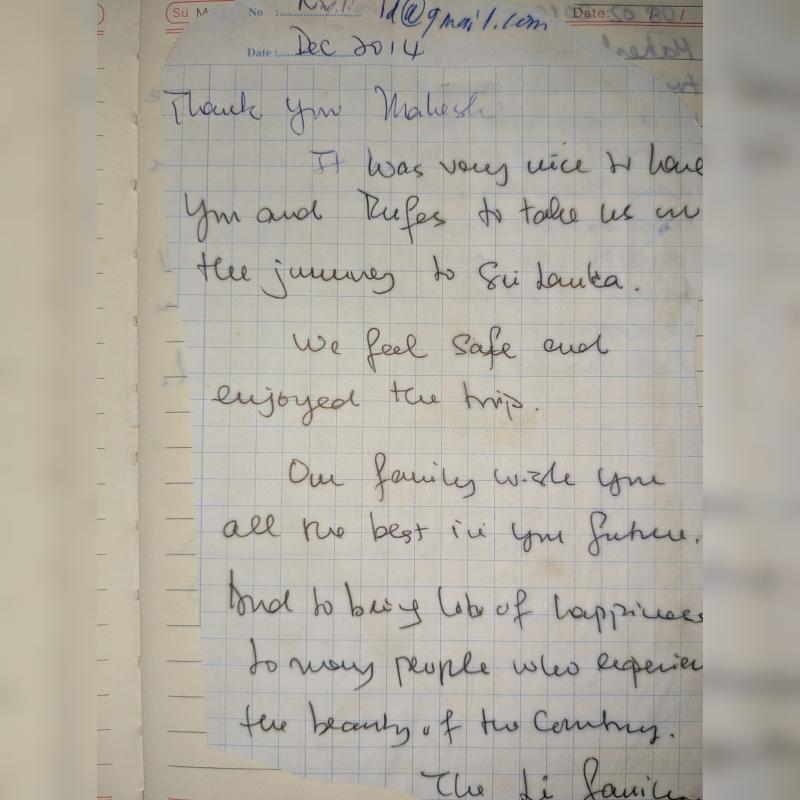 Su M No : 1d@gmail.com Date:
Date : Dec 2014
Thank you Mahesh
It was very nice to have
you and Rufes to take us on
the journey to Sri Lanka.
We feel safe and
enjoyed the trip.
Our family wish you
all the best in your future.
And to bring lots of happiness
to many people who experien
the beauty of the Country.
The Li family